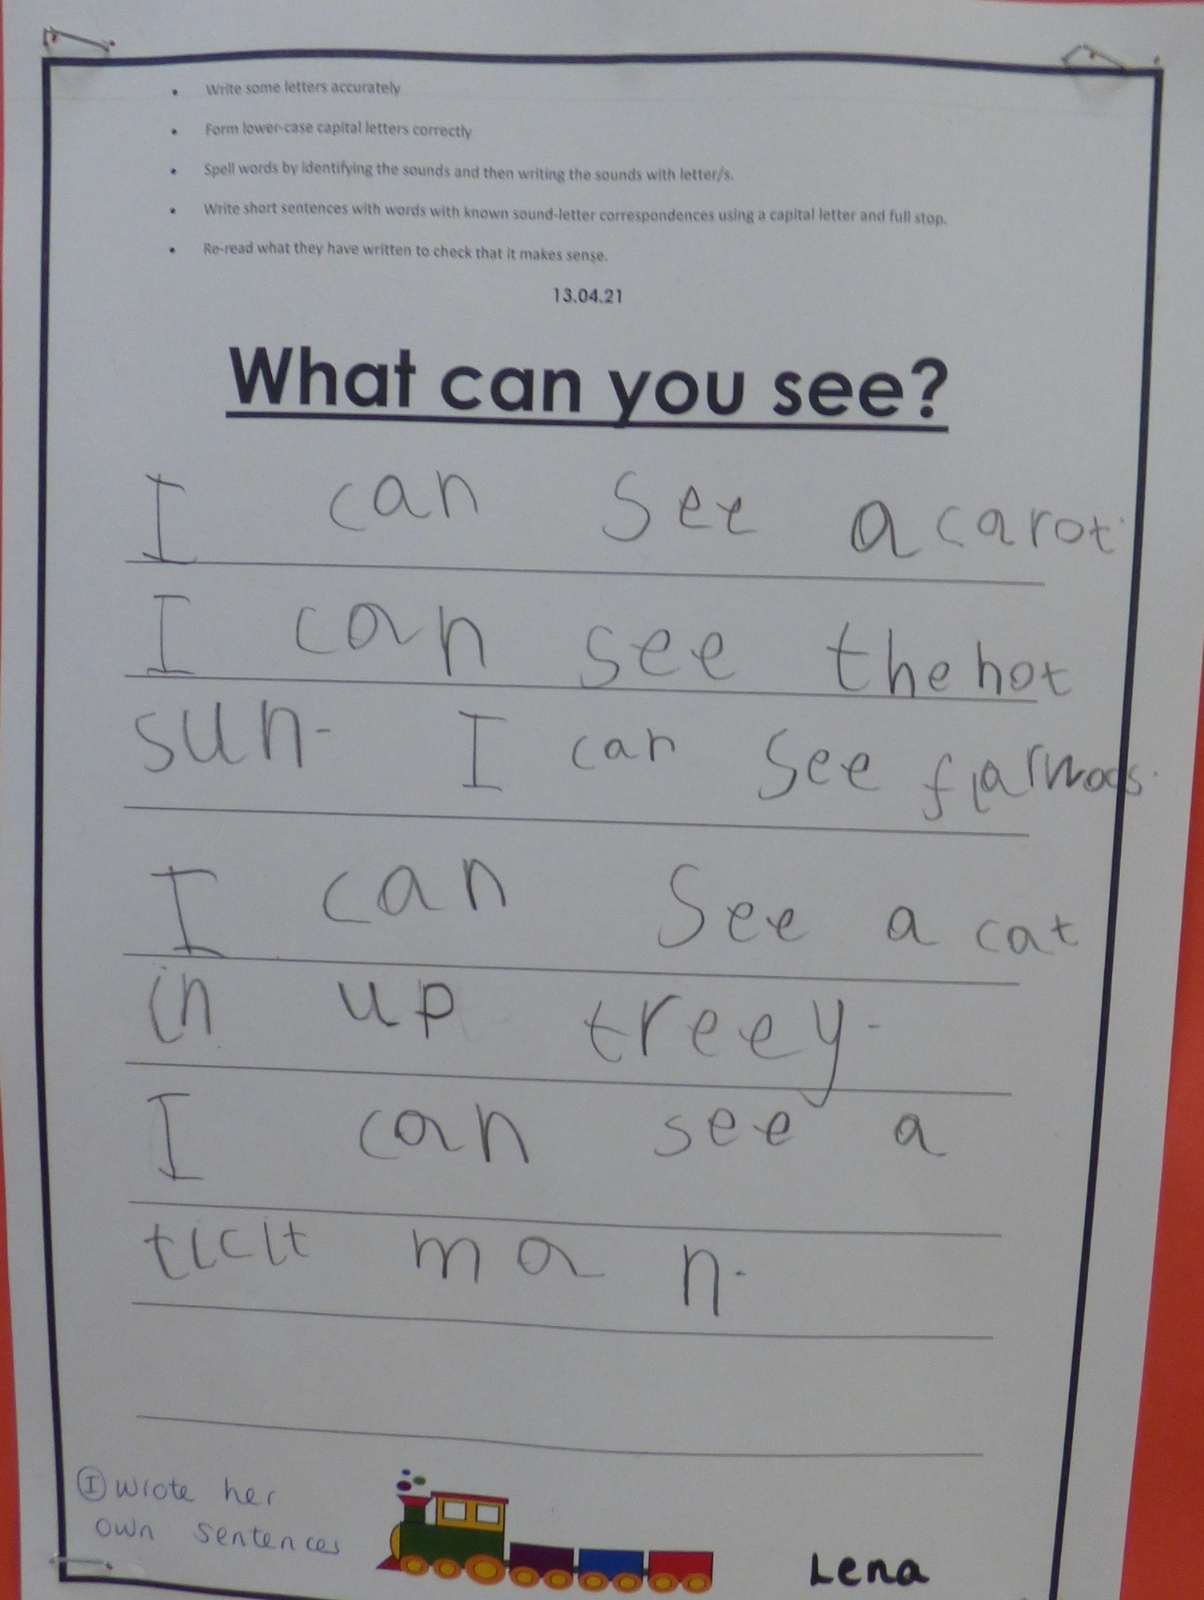 Write some letters accurately
Form lower-case capital letters correctly
Spell words by identifying the sounds and then writing the sounds with letter/s.
Write short sentences with words with known sound-letter correspondences using a capital letter and full stop.
Re-read what they have written to check that it makes sense.
13.04.21
What can you see?
I can see a carot.
I can see the hot
sun. I can see
I can see a cat
in up treey.
I can see a
ticit man.
I wrote her
own sentences
Lena